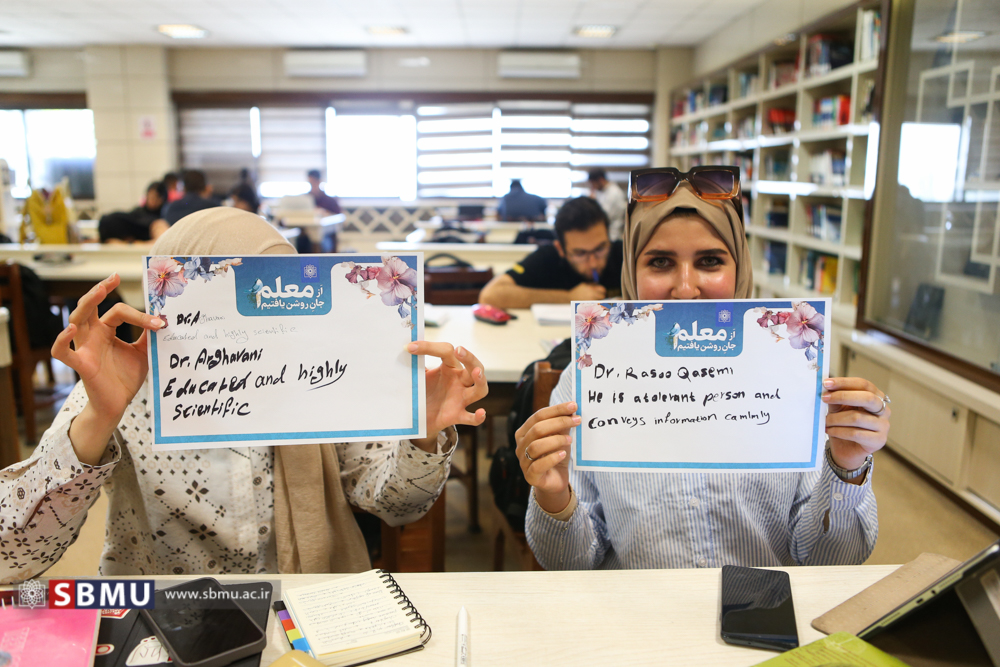 از
معلم
جان روشن یافتیم
Educated and highly scientific
Dr. Arghavani
Educated and highly
scientific
از
معلم
جان روشن یافتیم
Dr. Rasoo Qasemi
He is a tolerant person and
conveys information camlmly
SBMU
www.sbmu.ac.ir